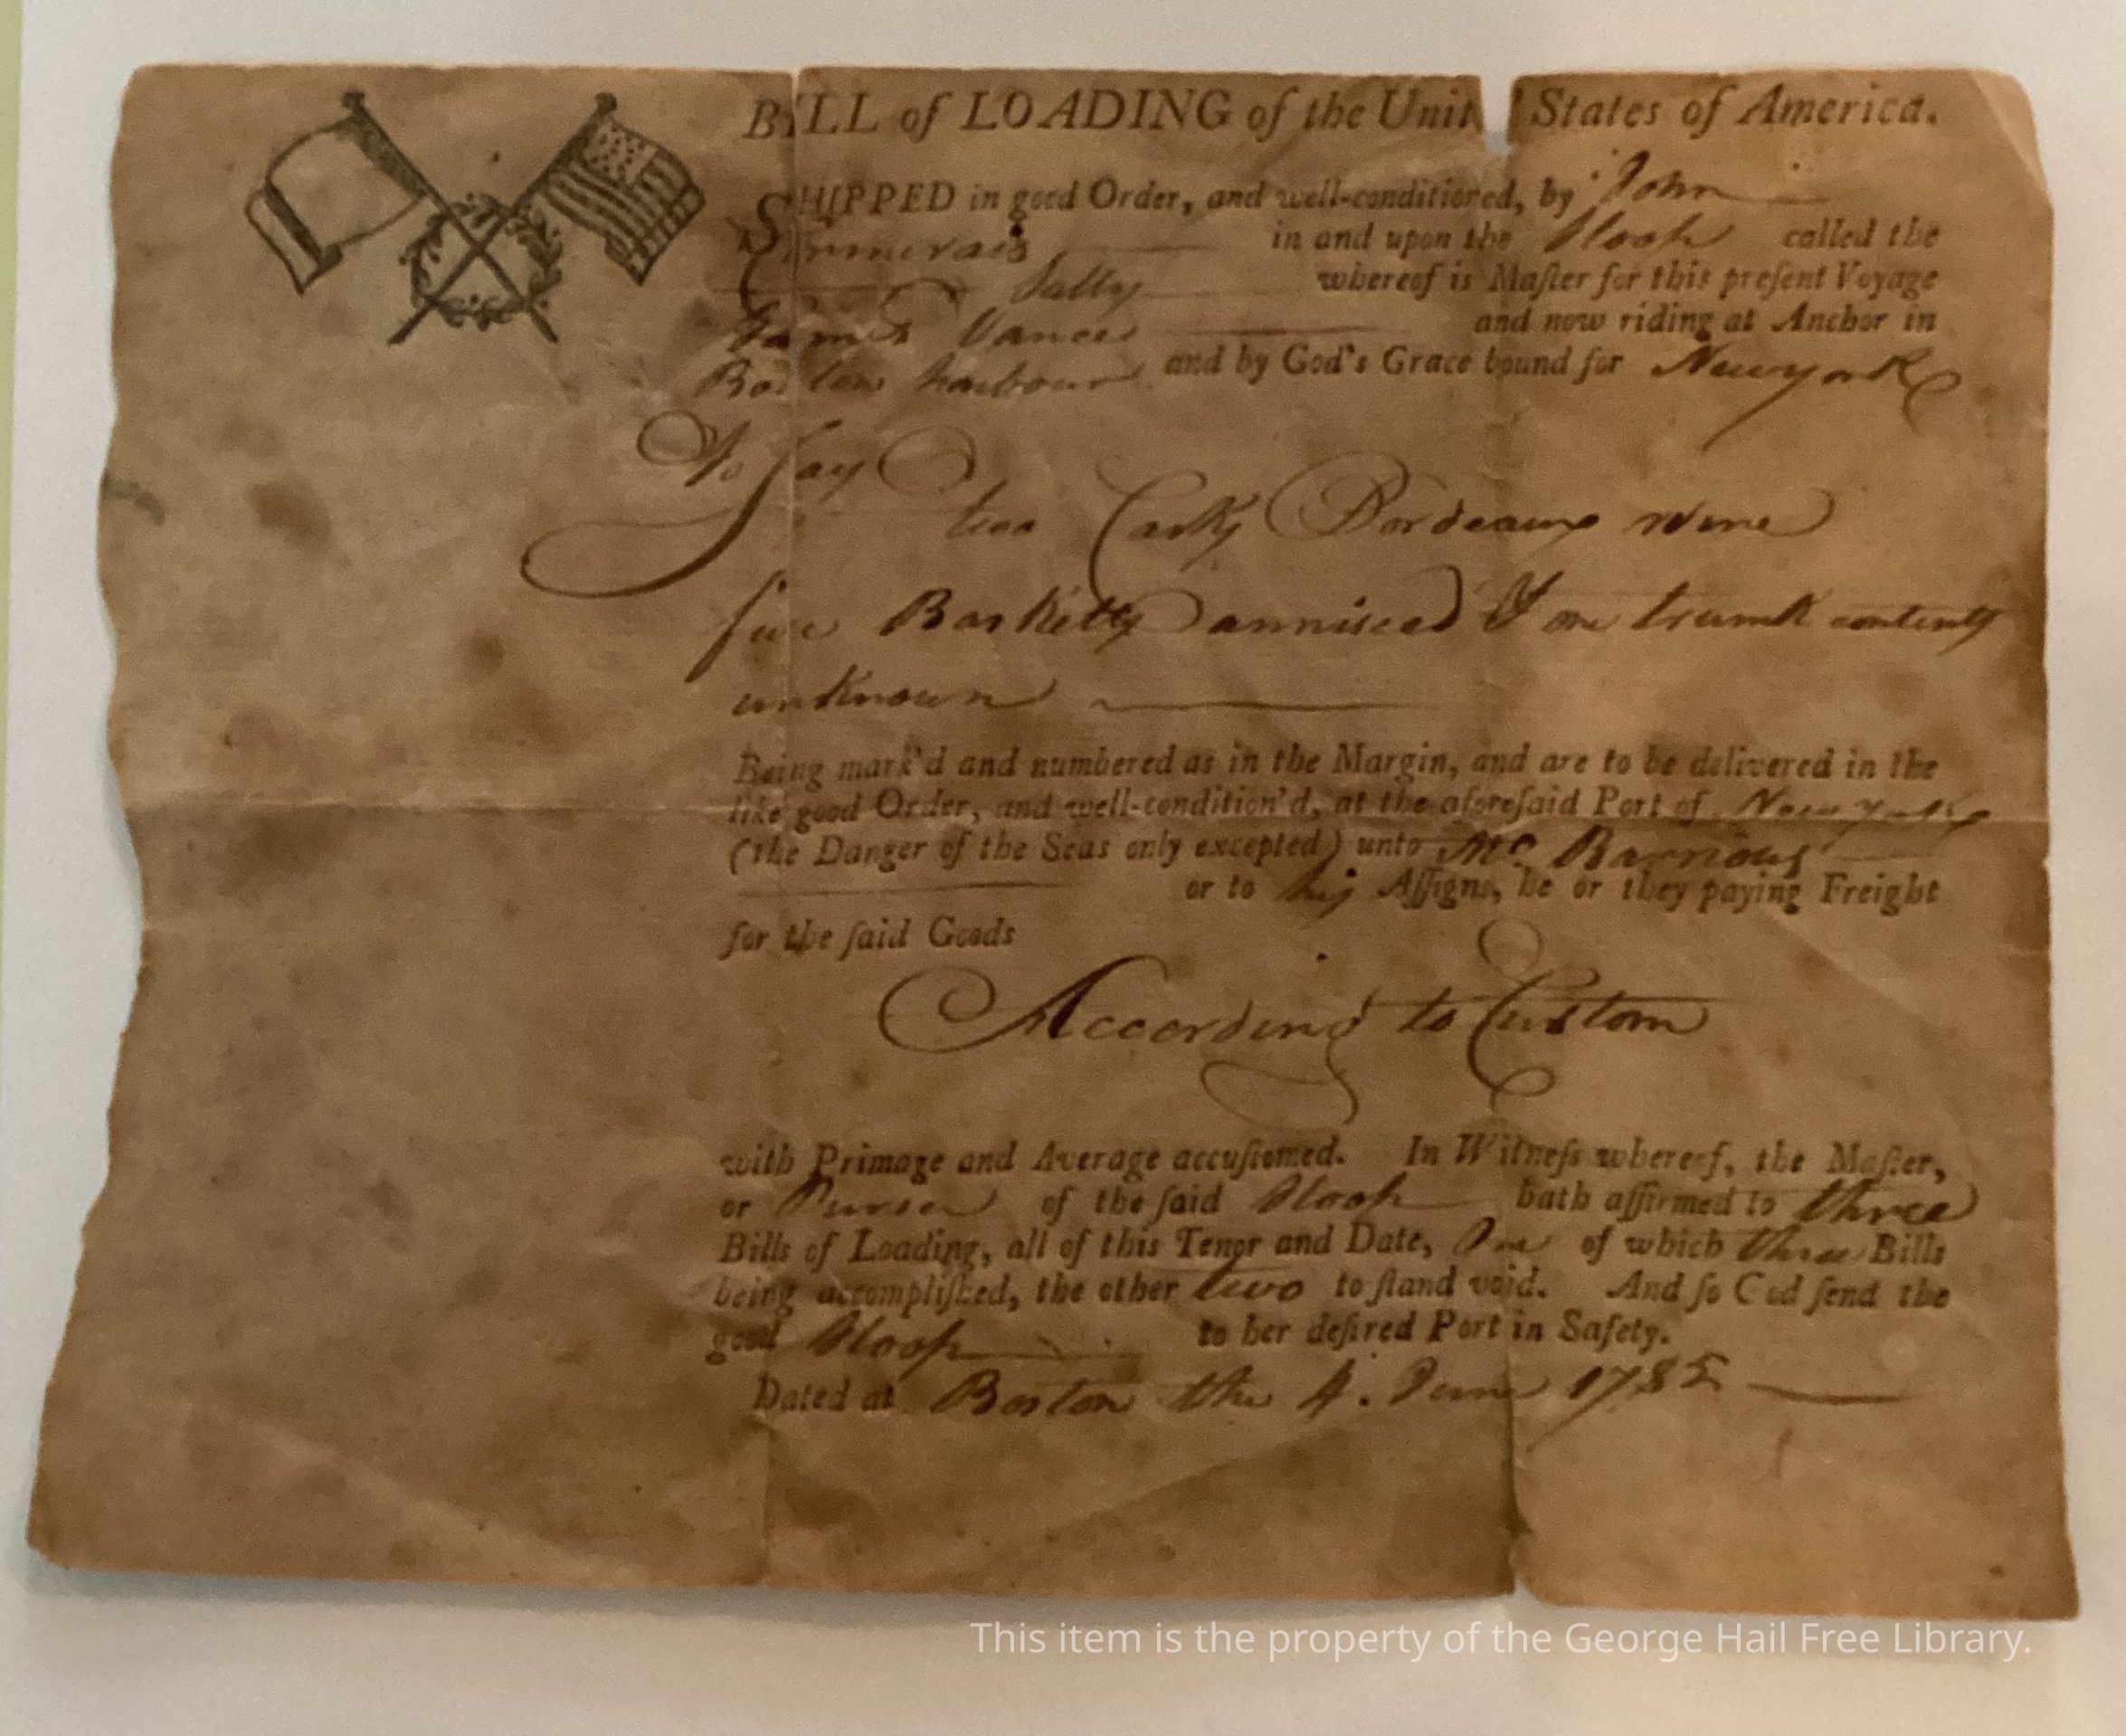 BILL of LOADING of the Unit States of America.
SHIPPED in good Order, and well-conditioned, by John
in and upon the Sloop called the
Sally whereof is Maſter for this preſent Voyage
James Vance and now riding at Anchor in
Boston harbour and by God's Grace bound for Newyork
To Say
two Casks Bordeaux wine
five Basketts anniseed & one trunk contents
unknown
Being mark'd and numbered as in the Margin, and are to be delivered in the
like good Order, and well-condition'd, at the aforeſaid Port of New york
(the Danger of the Seas only excepted) unto Mr Barrious
or to his Aſſigns, he or they paying Freight
for the ſaid Goods
According to Custom
with Primage and Average accuſtomed. In Witneſs whereof, the Maſter,
or Purser of the ſaid Sloop hath aſſirmed to three
Bills of Loading, all of this Tenor and Date, One of which three Bills
being accompliſhed, the other two to ſtand void. And ſo God ſend the
good Sloop to her deſired Port in Safety.
Dated at Boston the 4. June 1785
This item is the property of the George Hail Free Library.